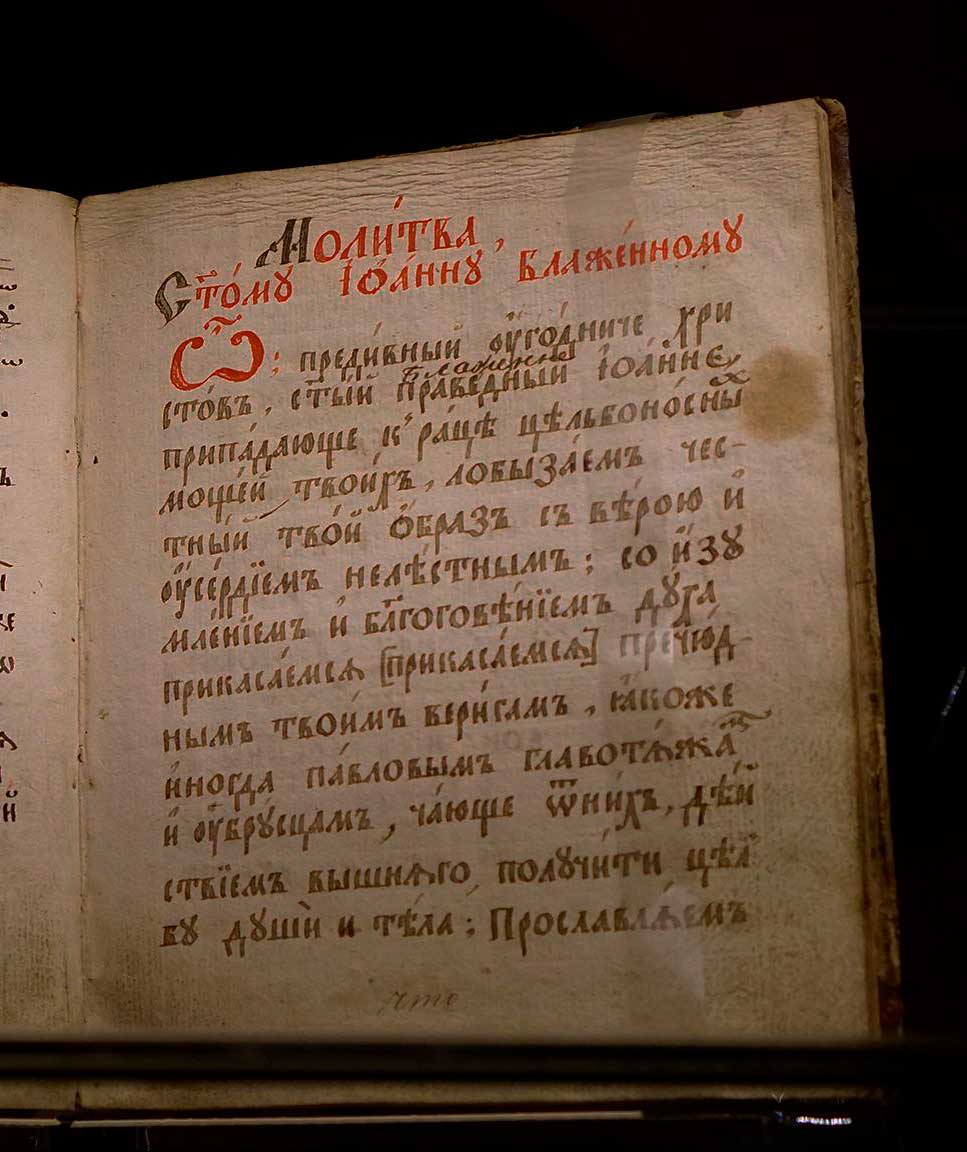 Моли́тва,
Ст҃о́му Іѡа́нну Блаже́нному
Ѽ: преди́вный ᲂу҆го́дниче хри
сто́въ, ст҃ы́й пра́ведный Іѡа́нне,
блаженне
припа́дающе к' ра́цѣ цѣльбоно́сны́х
моще́й твои́хъ, лобыза́емъ чес-
тны́й тво́й ѻ҆́бразъ съ вѣ́рою и҆
ᲂу҆се́рдїемъ неле́стнымъ; со и҆зу
мле́нїемъ и҆ бл҃гоговѣ́нїемъ дꙋ́ха
прикаса́емсѧ [прикаса́емсѧ] пречю́д-
нымъ твои́мъ вери́гамъ, ꙗ҆́коже
и҆ногда па́вловымъ главотѧжа́м
и҆ ᲂу҆бру́сцамъ, ча́юще ѿни́хъ, дѣ́й
ствїемъ вы́шнѧго получи́ти цѣл
бу души̂ и тѣ́ла; Прославлѧ́емъ
что